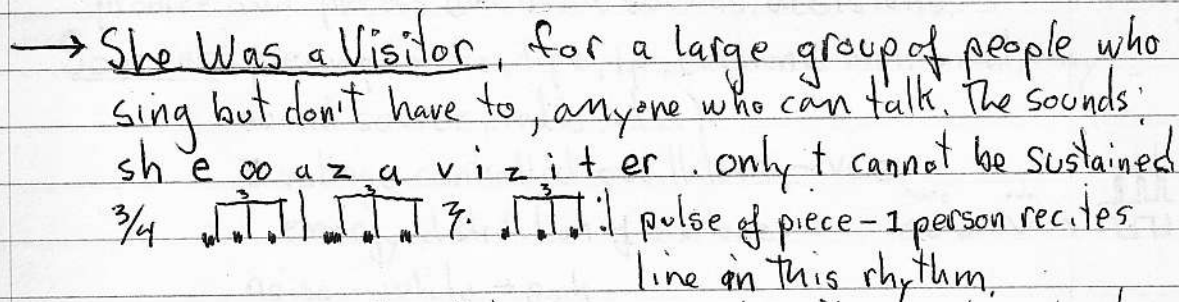 → She Was a Visitor, for a large group of people who
sing but don't have to, anyone who can talk. The sounds:
sh e oo a z a v i z i t er . only t cannot be sustained
3/4 3 | 3 3 :| pulse of piece - 1 person recites
line in this rhythm.